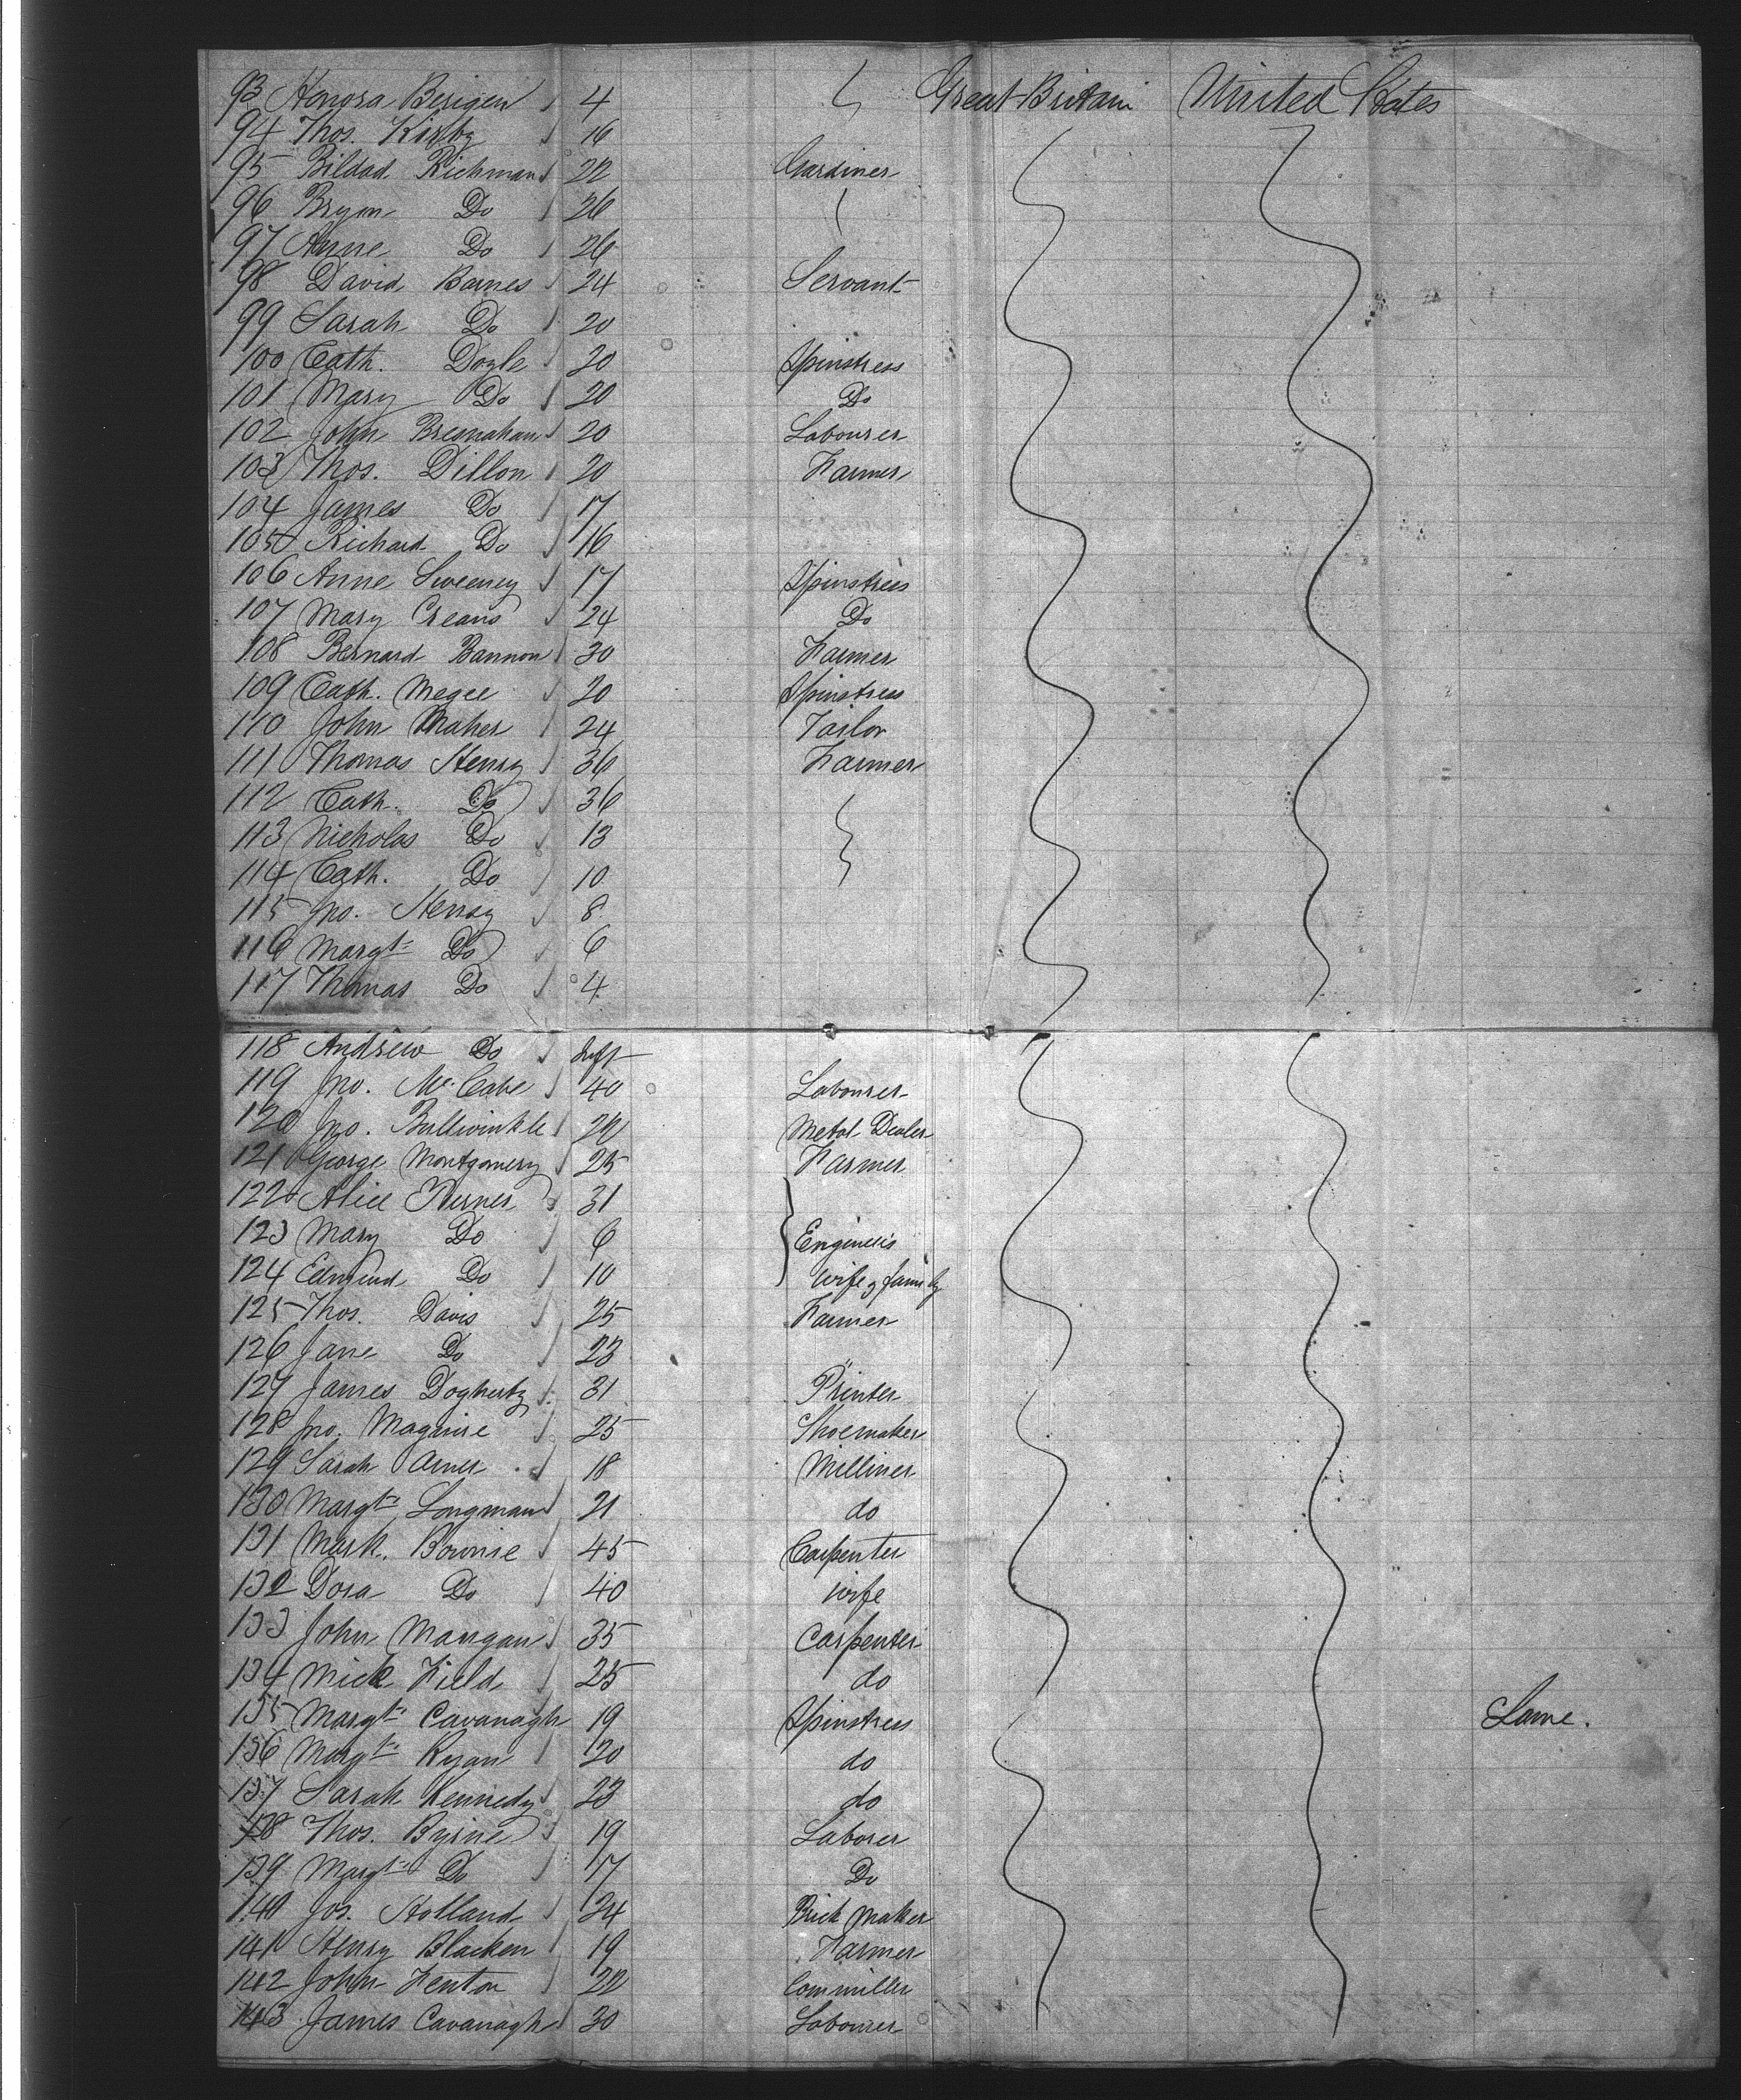 93 Honora Berigen 4 Great Britain United States
94 Thos. Kirby 16
95 Bildad Richman 22 Gardiner
96 Bryan Do 26
97 Anne Do 26
98 David Barnes 24 Servant
99 Sarah Do 20
100 Cath. Doyle 20 Spinstress
101 Mary Do 20 Do
102 John Bresnahan 20 Labourer
103 Thos. Dillon 20 Farmer
104 James Do 17
105 Richard Do 16
106 Anne Sweeney 17 Spinstress
107 Mary Creans 24 Do
108 Bernard Bannon 30 Farmer
109 Cath. Megee 20 Spinstress
110 John Maher 24 Tailor
111 Thomas Henry 36 Farmer
112 Cath. Do 36
113 Nicholas Do 13
114 Cath. Do 10
115 Jno. Henry 8
116 Margt Do 6
117 Thomas Do 4
118 Andrew Do Inft
119 Jno. McCabe 40 Labourer
120 Jno. Bullwinkle 20 Metal Dealer
121 George Montgomery 25 Farmer
122 Alice 31
123 Mary Do 6 Engineers
124 Edmund Do 10 wife & family
125 Thos. Davis 25 Farmer
126 Jane Do 23 "
127 James Doghertz 31 Printer
128 Jno. Maguire 25 Shoemaker
129 Sarah 18 Milliner
130 Margt Longman 21 do
131 Mark. Bownie 45 Carpenter
132 Dora Do 40 wife
133 John Mangan 35 Carpenter
134 Mick Field 25 do
135 Margt Cavanagh 19 Spinstress Lame.
136 Margt Ryan 20 do
137 Sarah Kennedy 23 do
138 Thos. Byrne 19 Laborer
139 Margt Do 17 Do
140 Jos. Holland 34 Brick Maker
141 Henry Blacken 19 Farmer
142 John Fenton 22 Cornmiller
143 James Cavanagh 30 Labourer